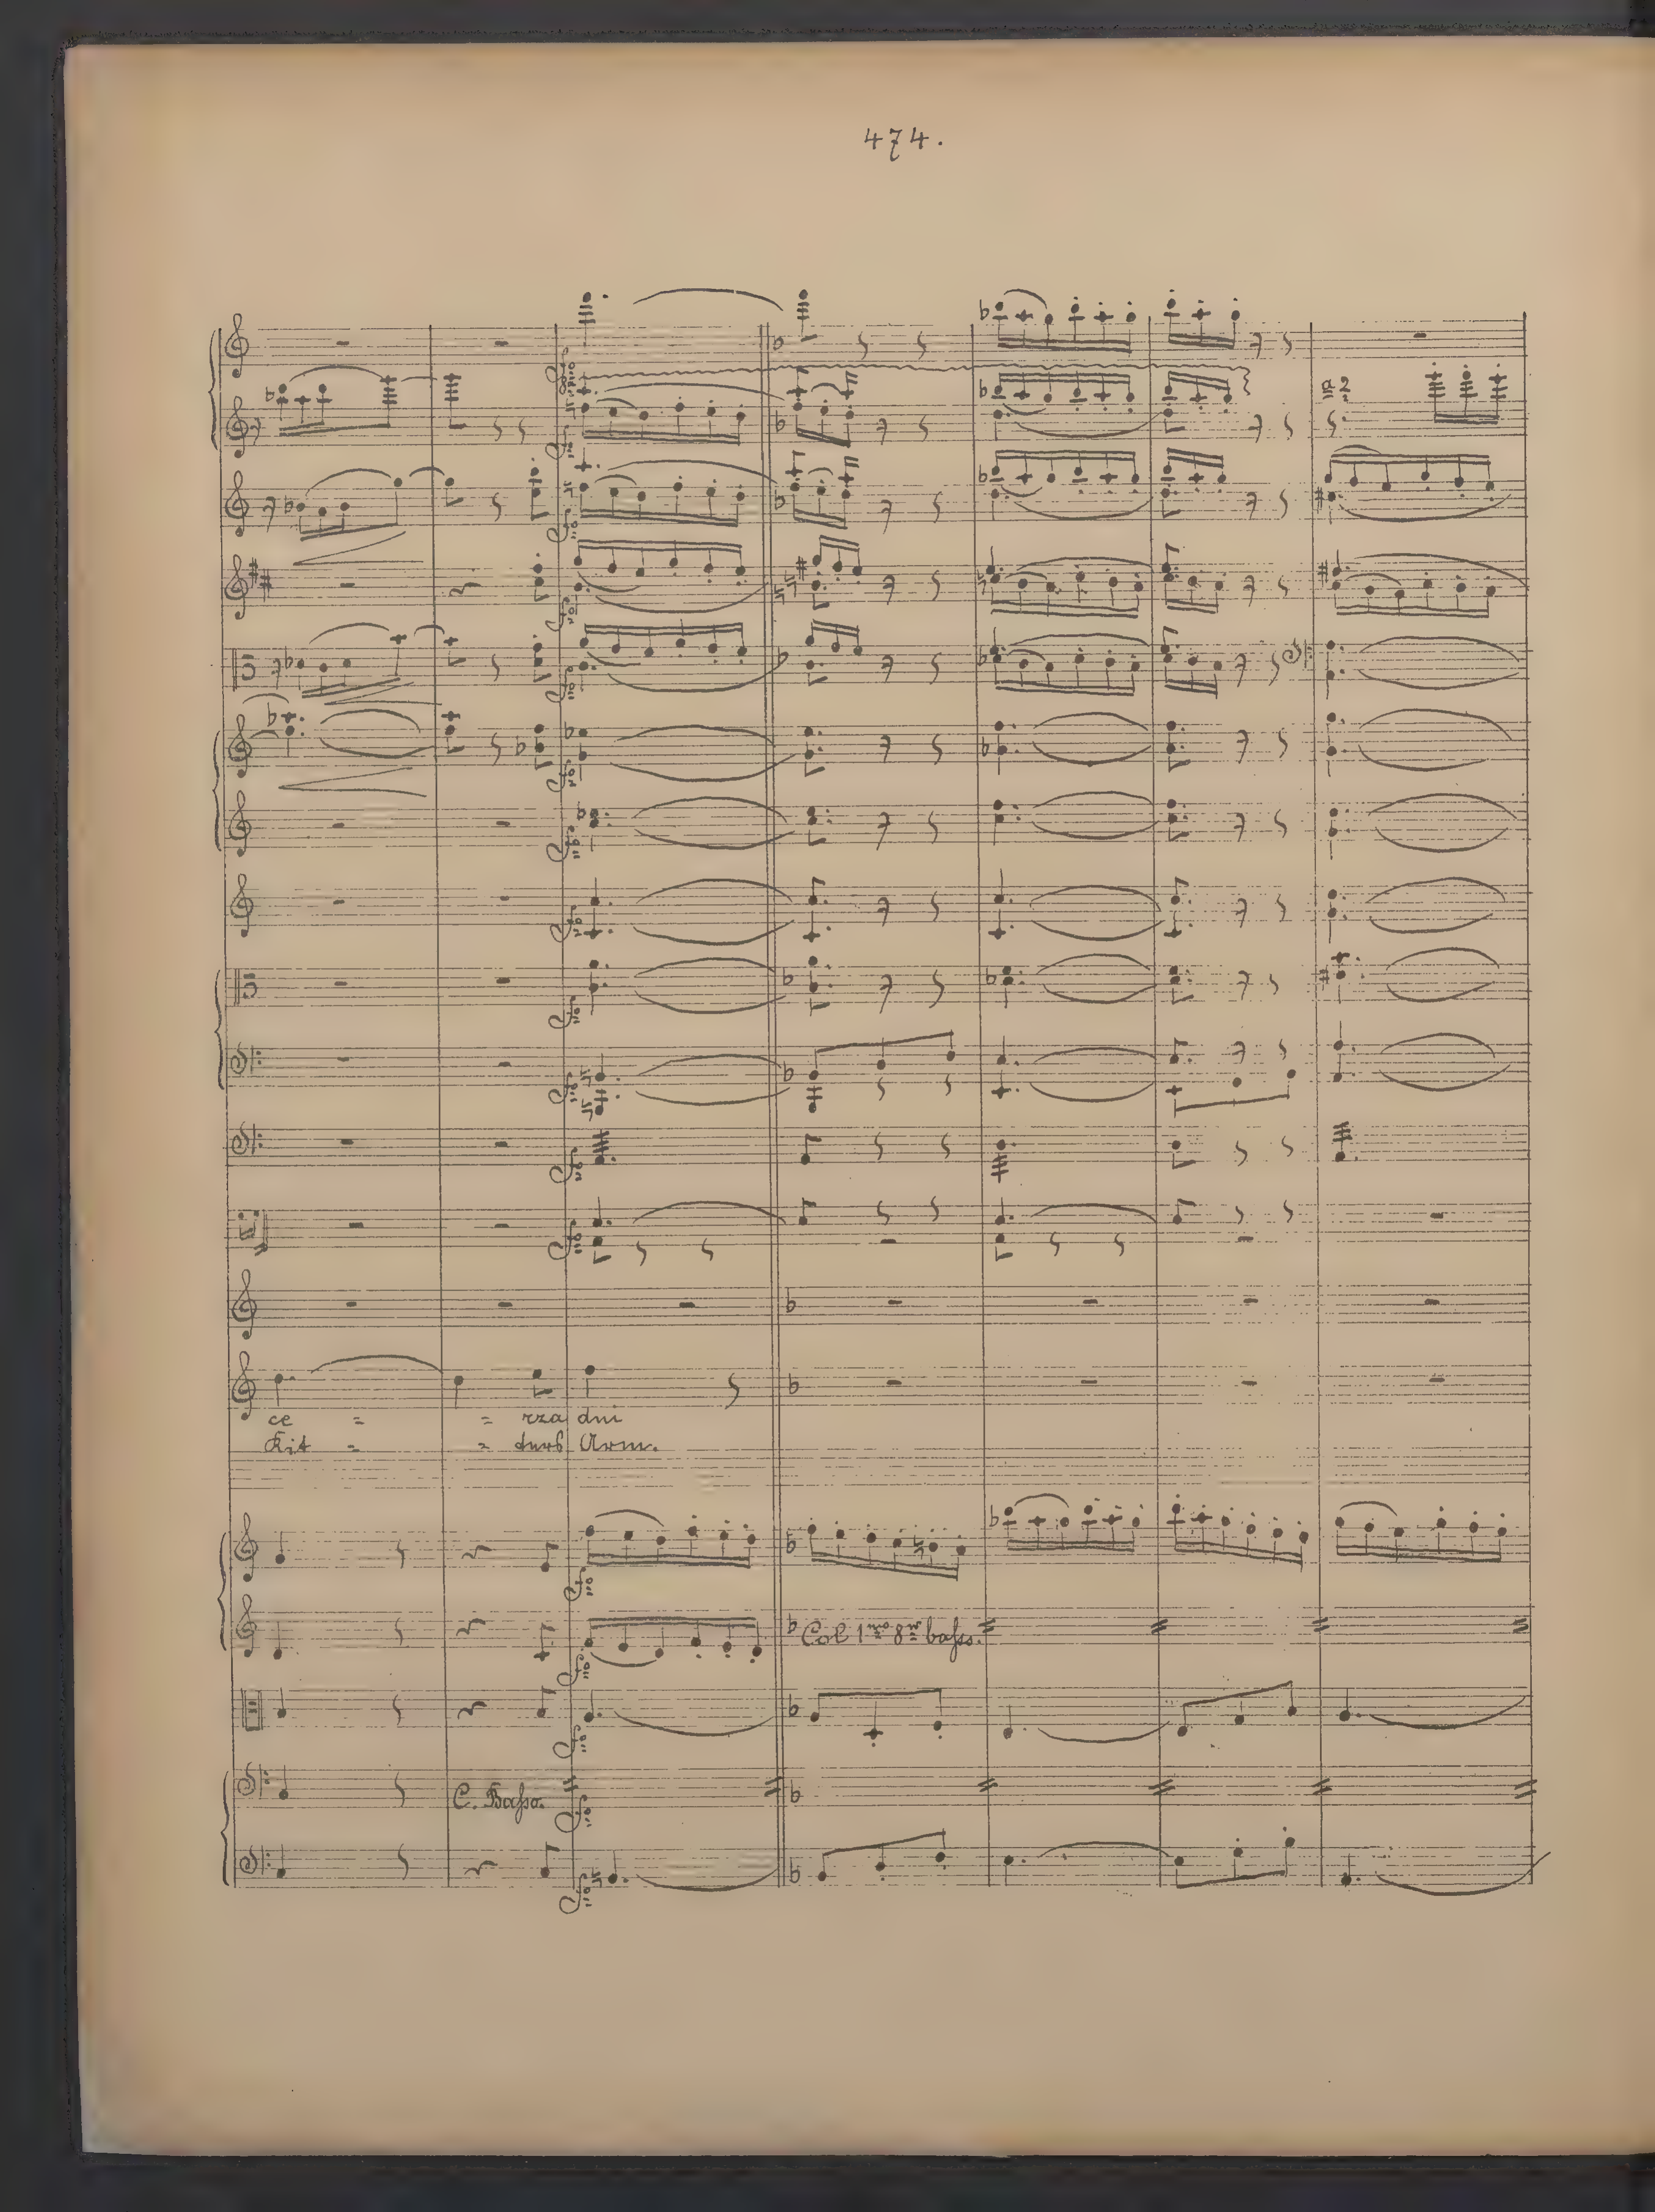 474.
a 2
ce = = rza dni
Rit = = ters Arm.
Col 1mo 8va basso.
C. Basso.